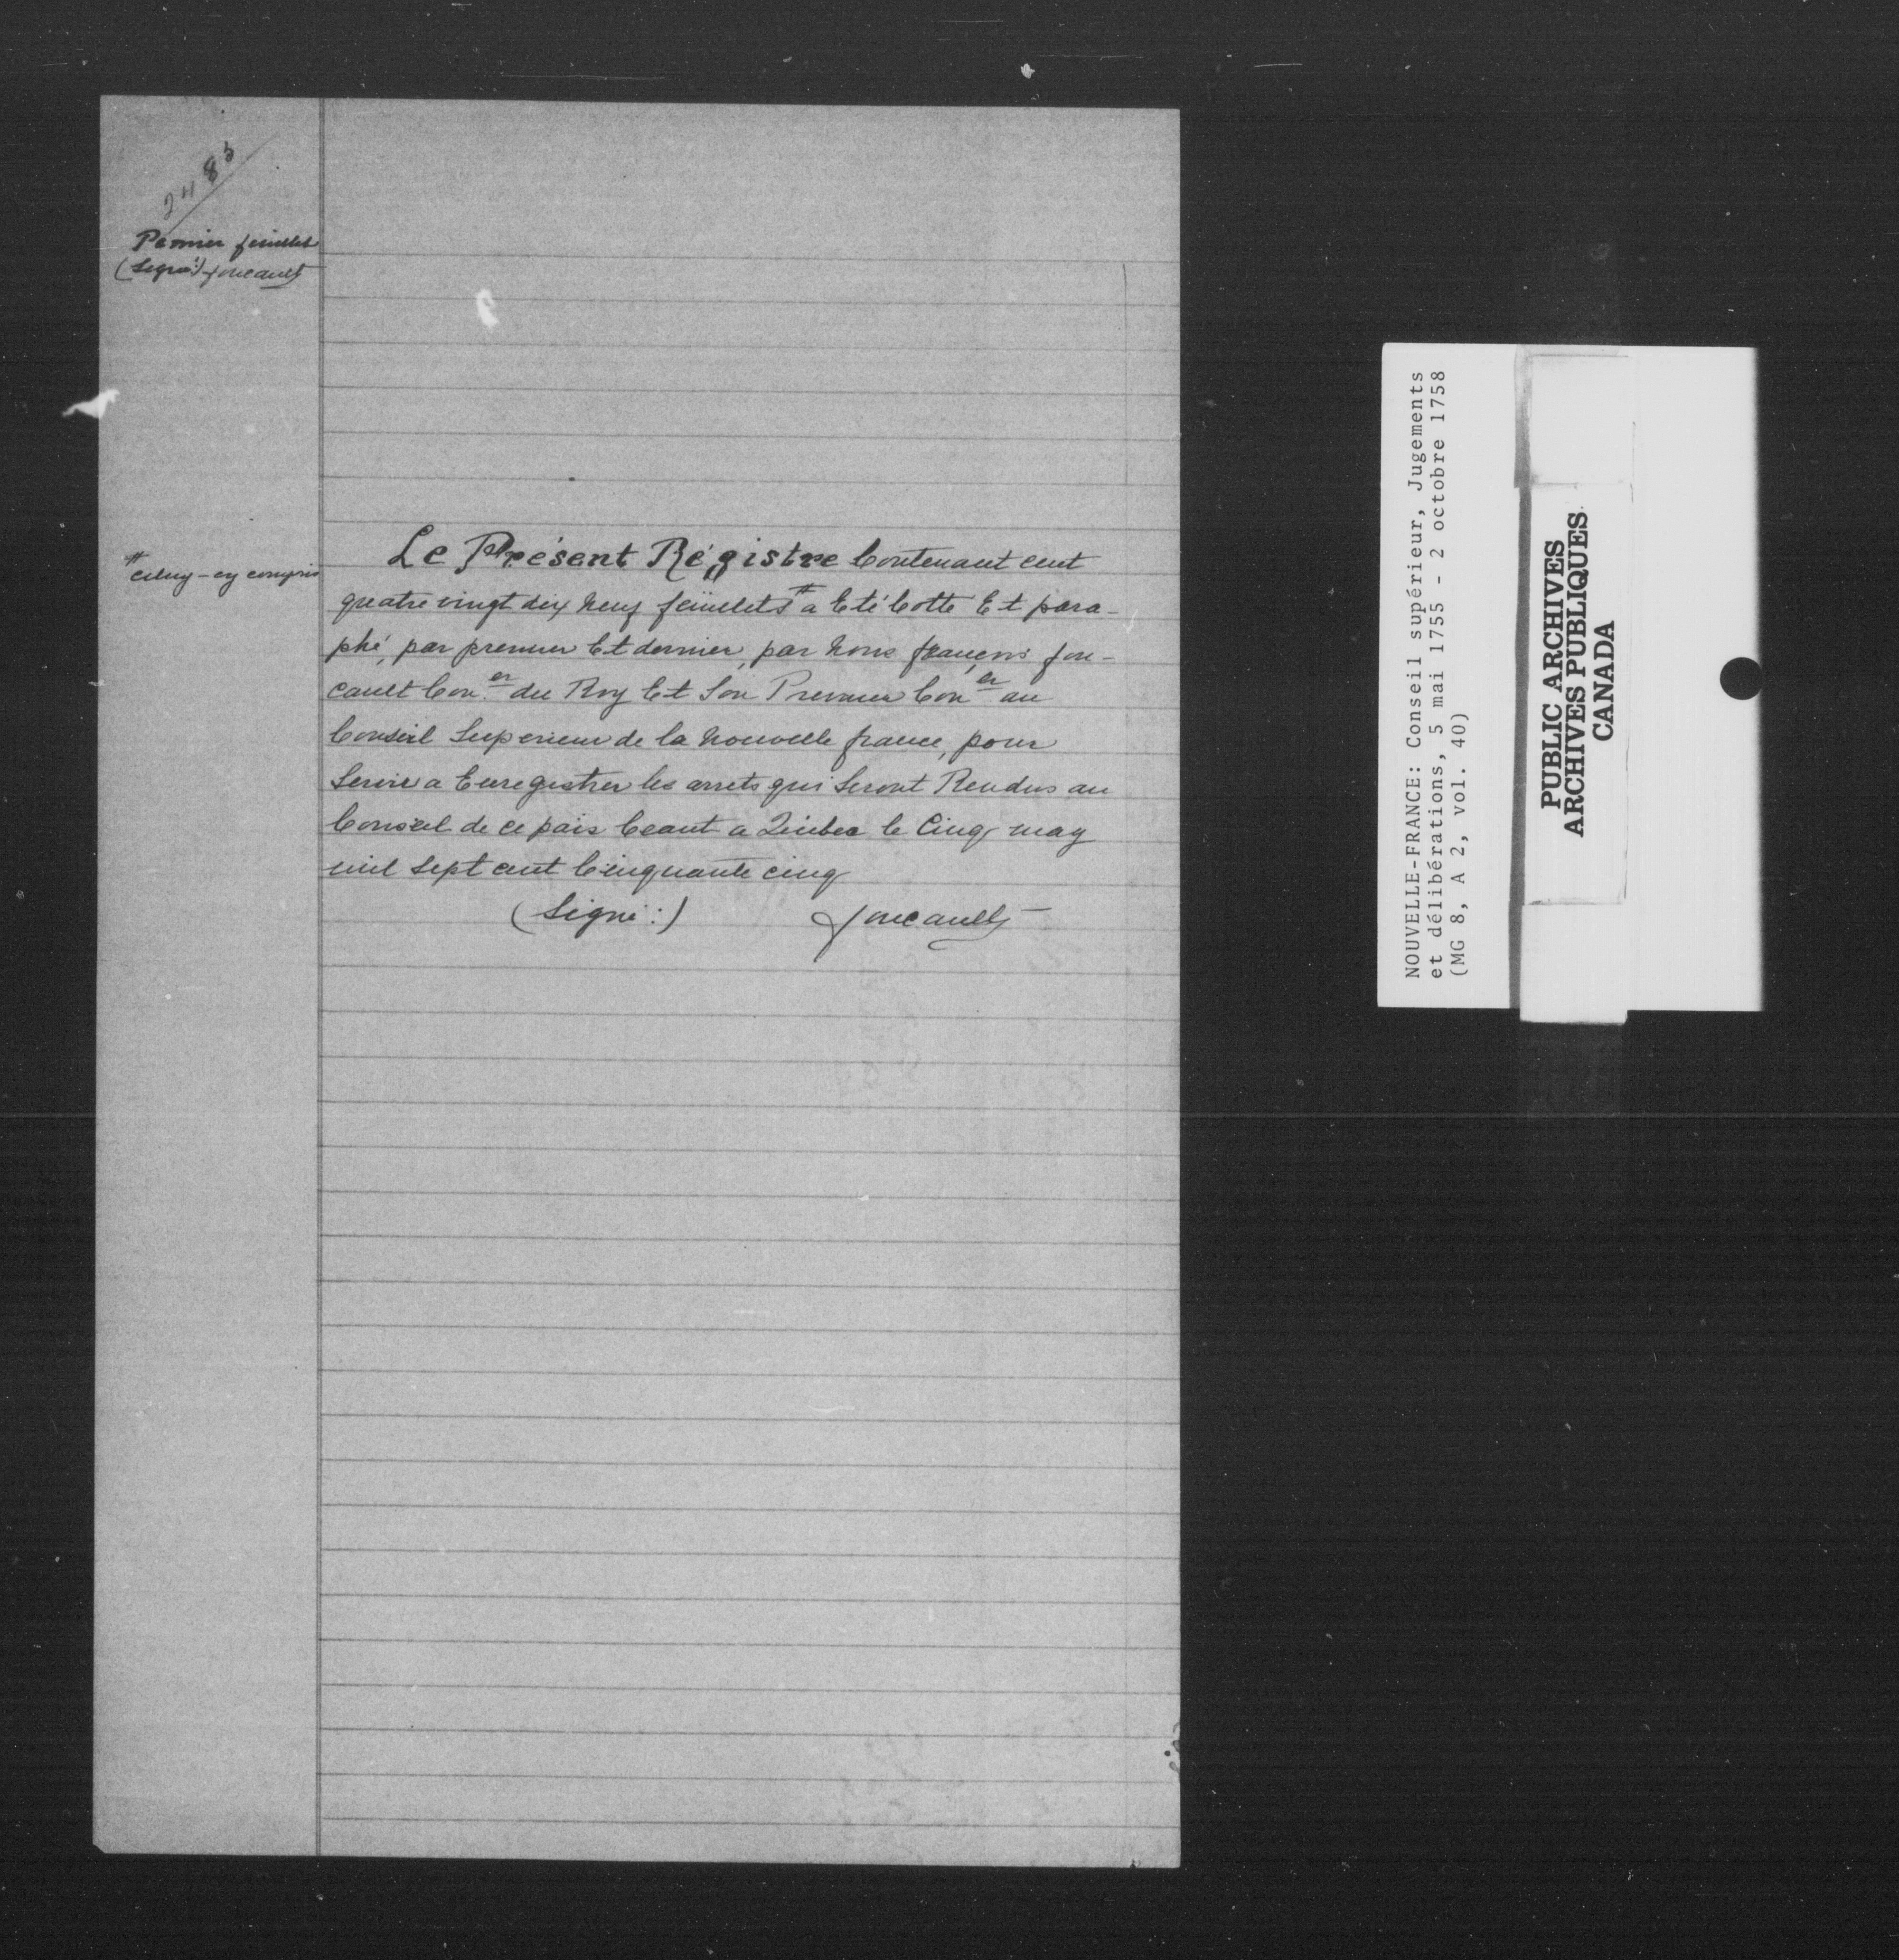 2483
Pemier feuillet
(Signé:) foucault
# celuy-cy compris
Le Présent Régistre Contenant cent
quatre vingt dix neuf feüillets # a Eté Cotté Et para-
phé, par premier Et dernier, par Nous françois fou-
cault Con.er du Roy Et Son Premier Con.er au
Conseil Superieur de la Nouvelle france, pour
Servir a Enregistrer les arrets qui Seront Rendus au
Conseil de ce païs Ceant a Quebec le Cinq may
mil Sept cent Cinquante cinq
(Signé:) foucault
NOUVELLE-FRANCE: Conseil supérieur, Jugements
et délibérations, 5 mai 1755 - 2 octobre 1758
(MG 8, A 2, vol. 40)
PUBLIC ARCHIVES
ARCHIVES PUBLIQUES
CANADA